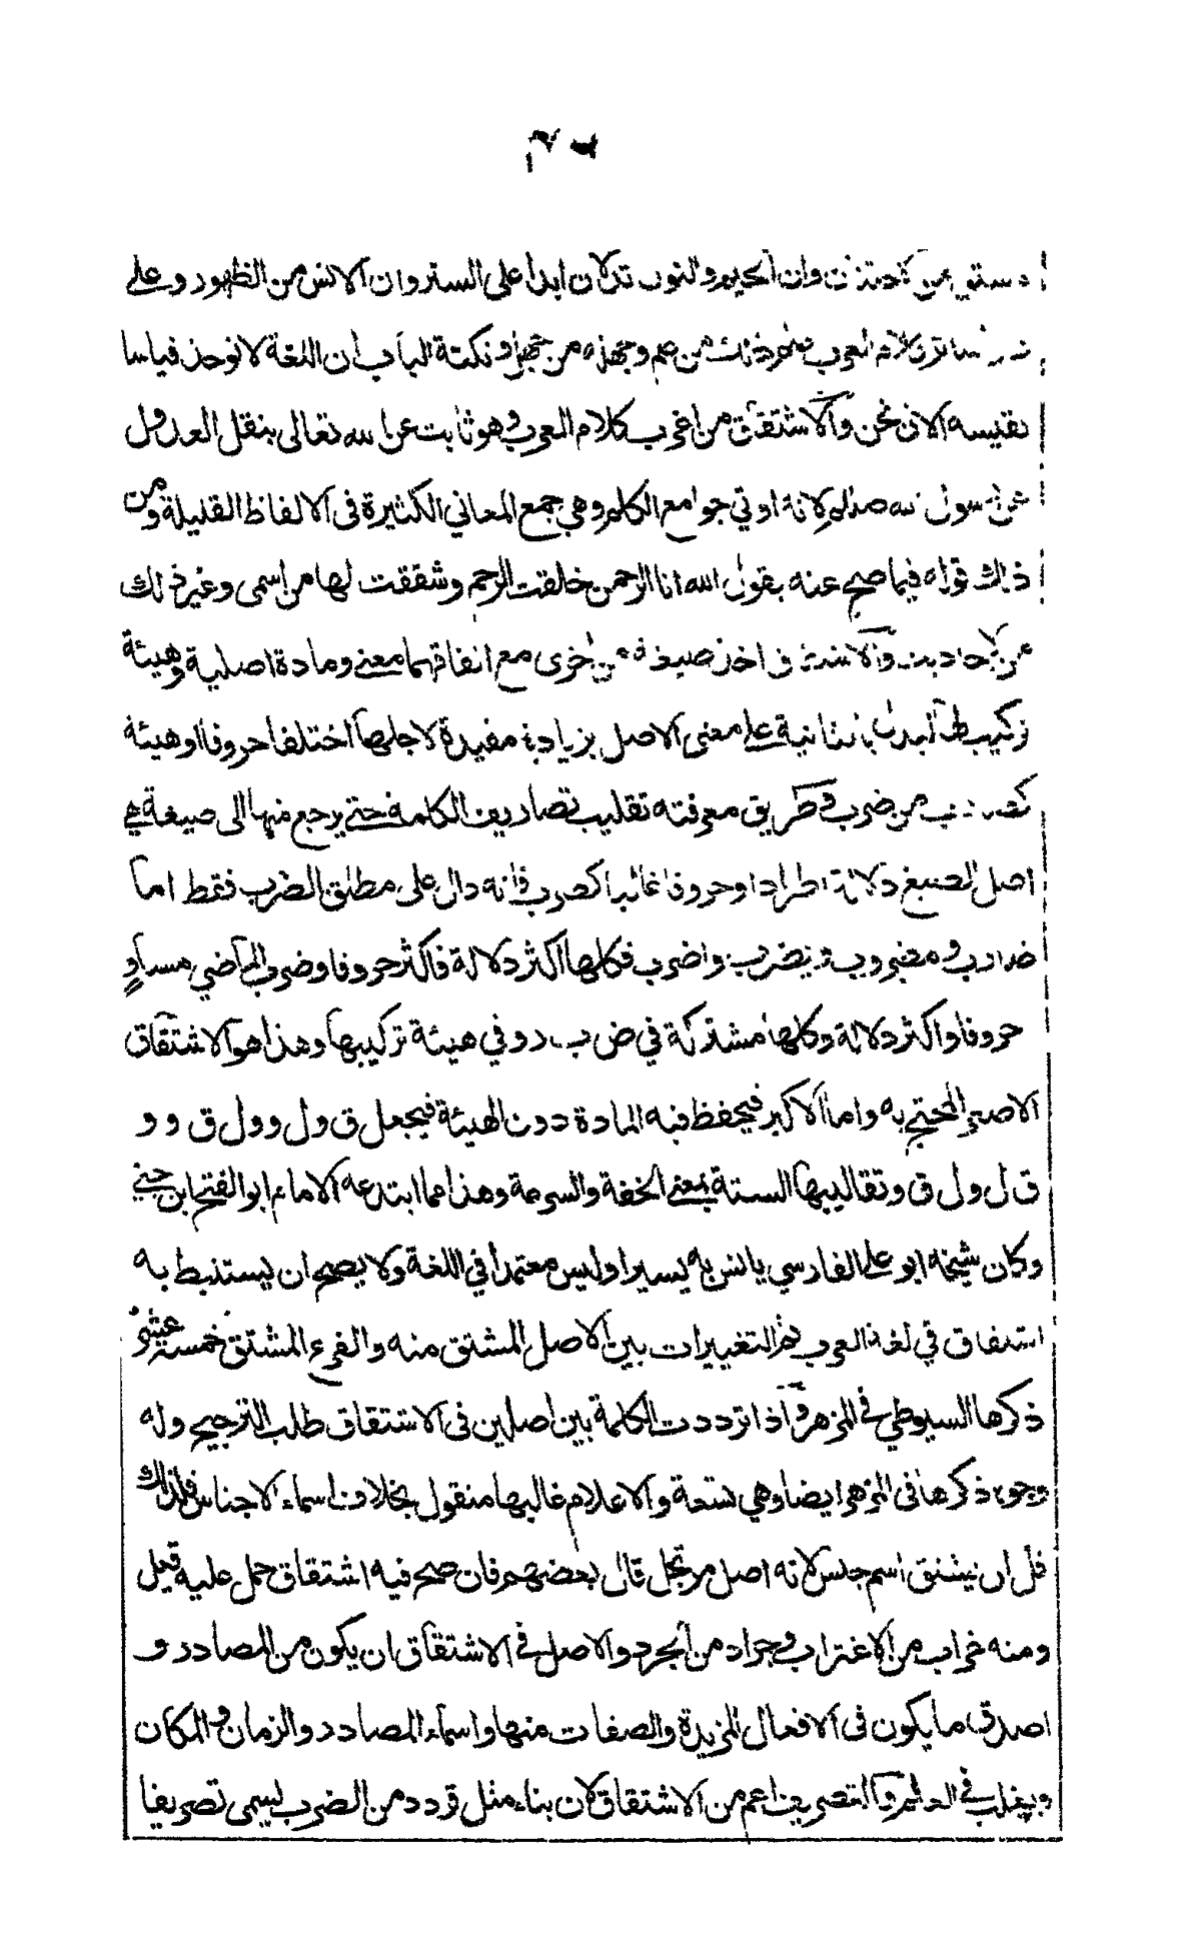 مستق من الاجتنان وان الجيم والنون تدلان ابدا على الستر وان الانس من الظهور وعلى
سائر كلام العرب علم ذلك من علم وجهله من جهل ونكتة الباب ان اللغة لا توخذ قياسا
نقيسه الان نحن والاشتقاق من اغرب كلام العرب وهو ثابت عن الله تعالى بنقل العدول
عن رسول الله صلالم لانه اوتي جوامع الكلم وهي جمع المعاني الكثيرة في الالفاظ القليلة ومن
ذلك قوله فيما صح عنه يقول الله انا الرحمن خلقت الرحم وشققت لها من اسمي وغير ذلك
من الاحاديث والاشتقاق اخذ صيغة من اخرى مع اتفاقهما معنى ومادة اصلية وهيئة
تركيب لها ليدل بالثانية على معنى الاصل بزيادة مفيدة لاجلها اختلفا حروفا او هيئة
كضارب من ضرب وطريق معرفته تقليب تصاريف الكلمة حتى يرجع منها الى صيغة هي
اصل الصيغ دلالة اطرادا وحروفا غالبا كضرب فانه دال على مطلق الضرب فقط اما
ضارب ومضروب ويضرب واضرب فكلها اكثر دلالة فاكثر حروفا وضرب الماضي مساو
حروفا واكثر دلالة وكلها مشتركة في ض ب ر وفي هيئة تركيبها وهذا هو الاشتقاق
الاصغر المحتج به واما الاكبر فيحفظ فيه المادة دون الهيئة فيجعل ق ول وول ق وو
ق ل ول ق وتقاليبها الستة بمعنى الخفة والسرعة وهذا مما ابتدعه الامام ابو الفتح ابن جني
وكان شيخه ابو علي الفارسي يانس به يسيرا وليس معتمدا في اللغة ولا يصح ان يستنبط به
اشتقاق في لغة العرب ثم التغييرات بين الاصل المشتق منه والفرع المشتق خمسة عشر
ذكرها السيوطي في المزهر واذا ترددت الكلمة بين اصلين في الاشتقاق طلب الترجيح وله
وجوه ذكرها في المزهر ايضا وهي تسعة والاعلام غالبها منقول بخلاف اسماء الاجناس فلذلك
قل ان يشتق اسم جنس لانه اصل مرتجل قال بعضهم فان صح فيه اشتقاق حمل عليه قيل
ومنه غراب من الاغتراب وجراد من الجرد والاصل في الاشتقاق ان يكون من المصادر و
اصدق ما يكون في الافعال المزيدة والصفات منها واسماء المصادر والزمان والمكان
ويغلب في العلم والتصريف اعم من الاشتقاق لان بناء مثل قردد من الضرب ليسمى تصريفا